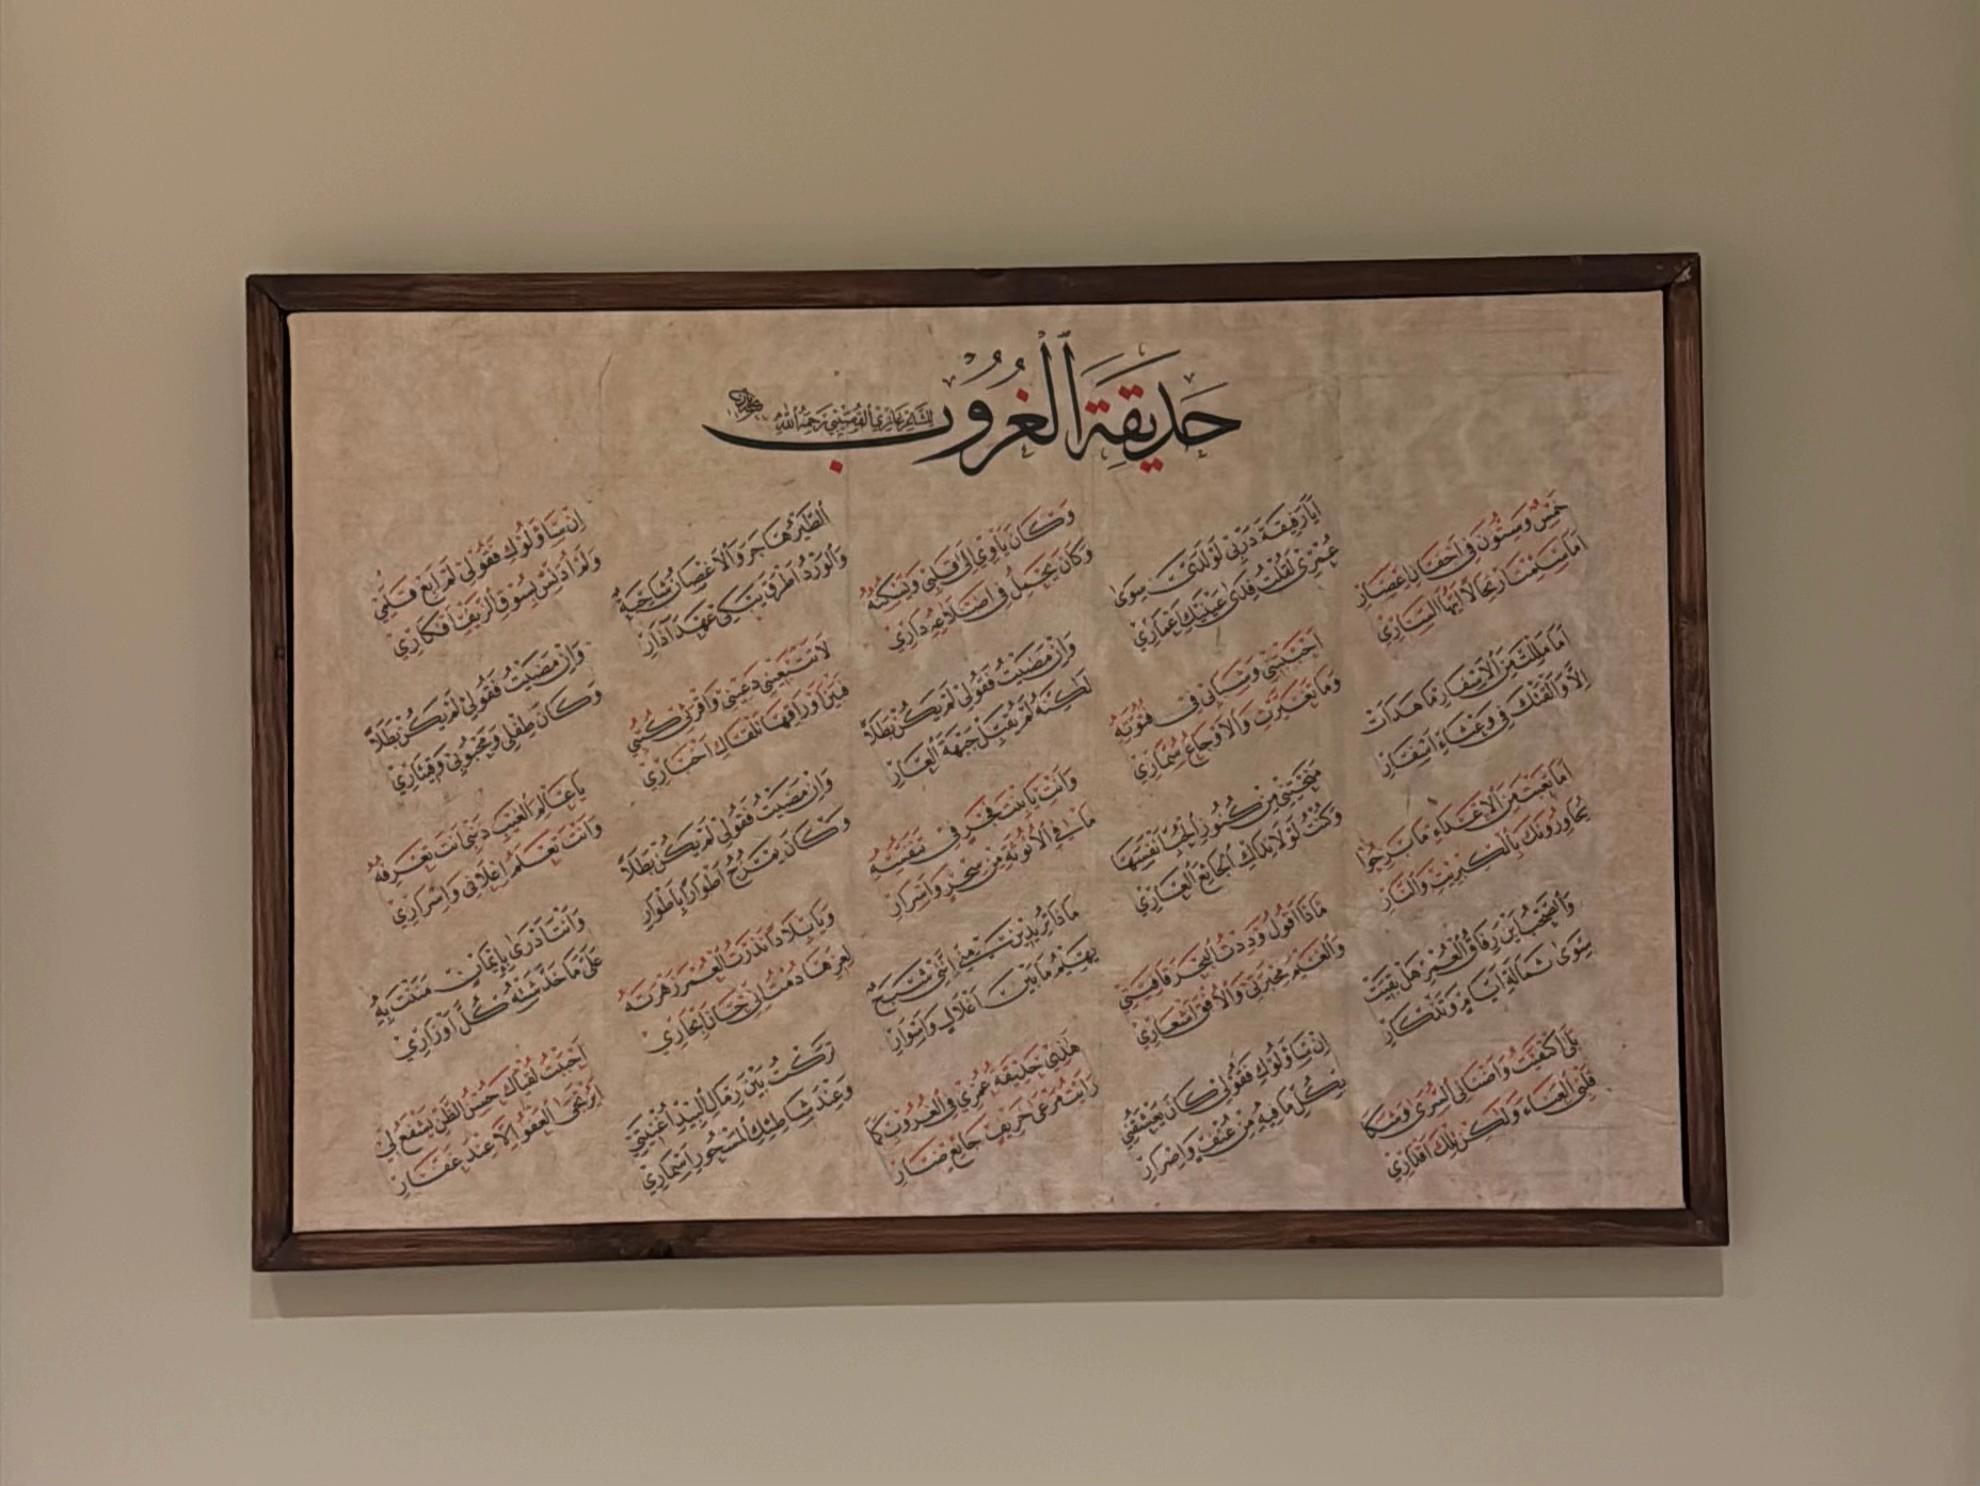 حَدِيقَةُ ٱلْغُرُوبِ
لِلشَّاعِرِ غَازِي القُصَيْبِي رَحِمَهُ اللهُ
خَمْسٌ وَسِتُّونَ فِي أَجْفَانِ إِعْصَارِ
أَمَا سَئِمْتَ ارْتِحَالًا أَيُّهَا السَّارِي
أَمَا مَلِلْتَ مِنَ الأَسْفَارِ مَا هَدَأَتْ
إِلَّا وَأَلْقَتْكَ فِي وَعْثَاءِ أَسْفَارِ
أَمَا تَعِبْتَ مِنَ الأَعْدَاءِ مَا بَرِحُوا
يُحَاوِرُونَكَ بِالْكِبْرِيتِ وَالنَّارِ
وَالصَّحْبُ أَيْنَ رِفَاقُ الْعُمْرِ هَلْ بَقِيَتْ
سِوَى ثُمَالَةِ أَيَّامٍ وَتَذْكَارِ
بَلَى اكْتَفَيْتُ وَأَضْنَانِي السُّرَى وَشَكَا
قَلْبِي الْعَنَاءَ وَلَكِنْ تِلْكَ أَقْدَارِي
أَيَا رَفِيقَةَ دَرْبِي لَوْ لَدَيَّ سِوَى
عُمْرِي لَقُلْتُ فِدَى عَيْنَيْكِ أَعْمَارِي
أَحْبَبْتِنِي وَشَبَابِي فِي فُتُوَّتِهِ
وَمَا تَغَيَّرْتِ وَالأَوْجَاعُ سُمَّارِي
مَنَحْتِنِي مِنْ كُنُوزِ الْحُبِّ أَنْفَسَهَا
وَكُنْتُ لَوْلَا نَدَاكِ الْجَائِعَ الْعَارِي
مَاذَا أَقُولُ وَدِدْتُ الْبَحْرَ قَافِيَتِي
وَالْغَيْمَ مِحْبَرَتِي وَالأُفْقَ أَشْعَارِي
إِنْ سَاءَلُوكِ فَقُولِي كَانَ يَعْشَقُنِي
بِكُلِّ مَا فِيهِ مِنْ عُنْفٍ وَإِصْرَارِ
وَكَانَ يَأْوِي إِلَى قَلْبِي وَيَسْكُنُهُ
وَكَانَ يَحْمِلُ فِي أَضْلَاعِهِ دَارِي
وَإِنْ مَضَيْتُ فَقُولِي لَمْ يَكُنْ بَطَلًا
لَكِنَّهُ لَمْ يُقَبِّلْ جَبْهَةَ الْعَارِ
وَأَنْتِ يَا بِنْتَ فَجْرٍ فِي تَنَفُّسِهِ
مَا فِي الأُنُوثَةِ مِنْ سِحْرٍ وَأَسْرَارِ
مَاذَا تُرِيدِينَ مِنِّي إِنَّنِي شَبَحٌ
يَهِيمُ مَا بَيْنَ أَغْلَالٍ وَأَسْوَارِ
هَذِي حَدِيقَةُ عُمْرِي فِي الْغُرُوبِ كَمَا
رَأَيْتِ مَرْعَى خَرِيفٍ جَائِعٍ ضَارِ
الطَّيْرُ هَاجَرَ وَالأَغْصَانُ شَاحِبَةٌ
وَالْوَرْدُ أَطْرَقَ يَبْكِي عَهْدَ آذَارِ
لَا تَتْبَعِينِي دَعِينِي وَاقْرَئِي كُتُبِي
فَبَيْنَ أَوْرَاقِهَا تَلْقَاكِ أَخْبَارِي
وَإِنْ مَضَيْتُ فَقُولِي لَمْ يَكُنْ بَطَلًا
وَكَانَ يَمْزُجُ أَطْوَارًا بِأَطْوَارِ
وَيَا بِلَادًا نَذَرْتُ الْعُمْرَ زَهْرَتَهُ
لِعِزِّهَا دُمْتِ إِنِّي حَانَ إِبْحَارِي
تَرَكْتُ بَيْنَ رِمَالِ الْبِيدِ أُغْنِيَتِي
وَعِنْدَ شَاطِئِكِ الْمَسْحُورِ أَسْمَارِي
إِنْ سَاءَلُوكِ فَقُولِي لَمْ أَبِعْ قَلَمِي
وَلَمْ أُدَنِّسْ بِسُوقِ الزَّيْفِ أَفْكَارِي
وَإِنْ مَضَيْتُ فَقُولِي لَمْ يَكُنْ بَطَلًا
وَكَانَ طِفْلِي وَمَحْبُوبِي وَقِيثَارِي
يَا عَالِمَ الْغَيْبِ ذَنْبِي أَنْتَ تَعْرِفُهُ
وَأَنْتَ تَعْلَمُ إِعْلَانِي وَإِسْرَارِي
وَأَنْتَ أَدْرَى بِإِيمَانٍ مَنَنْتَ بِهِ
عَلَيَّ مَا خَدَشَتْهُ كُلُّ أَوْزَارِي
أَحْبَبْتُ لُقْيَاكَ حُسْنُ الظَّنِّ يَشْفَعُ لِي
أَيُرْتَجَى الْعَفْوُ إِلَّا عِنْدَ غَفَّارِ